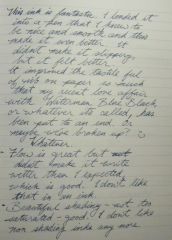 This ink is fantastic. I loaded it
into a pen that I knew to
be nice and smooth and this
made it even better. It
didn't make it slippery,
but it felt better.
It improved the tactile feel
of nib on paper so much
that my recent love affair
with Waterman Blue Black
or whatever its called, has
been put to an end. or
maybe we're broken up? :)
Whatever.
- Flow is great but not
didn't make it write
wetter than I expected,
which is good. I don't like
that in an ink.
- Beautiful shading - not too
saturated - good, I don't like
non shading inks any more.